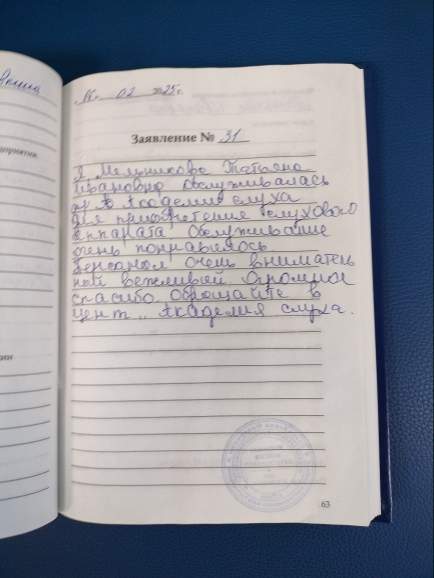 02 2025 г.
Заявление № 31
Я Мельникова Татьяна
Ивановна обслуживалась
в Академия слуха
для приобретения слухового
аппарата. Обслуживание
очень понравилось
Персонал очень вниматель
ный вежливый. Огромное
спасибо. обращайте в
цент „ Академия слуха.
63